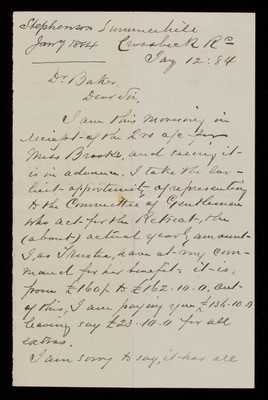 Stephenson
Jany 1884
Summerhill
Crossbeck Rd
Jay 12: 84
Dr. Baker
Dear Sir,
I am this morning in
receipt of the 2nd a/c for
Miss Brooke, and seeing it
is in advance, I take the ear-
liest opportunity of representing
to the Committee of Gentlemen
who act for the Retreat, the
(about) actual yearly amount
I, as Trustee, have at my com-
mand for her benefit, it is,
from £160/- to £162-10-0, out
of this, I am paying you £136-10-0
leaving say £25-10-0 for all
extras.
I am sorry to say, it has all